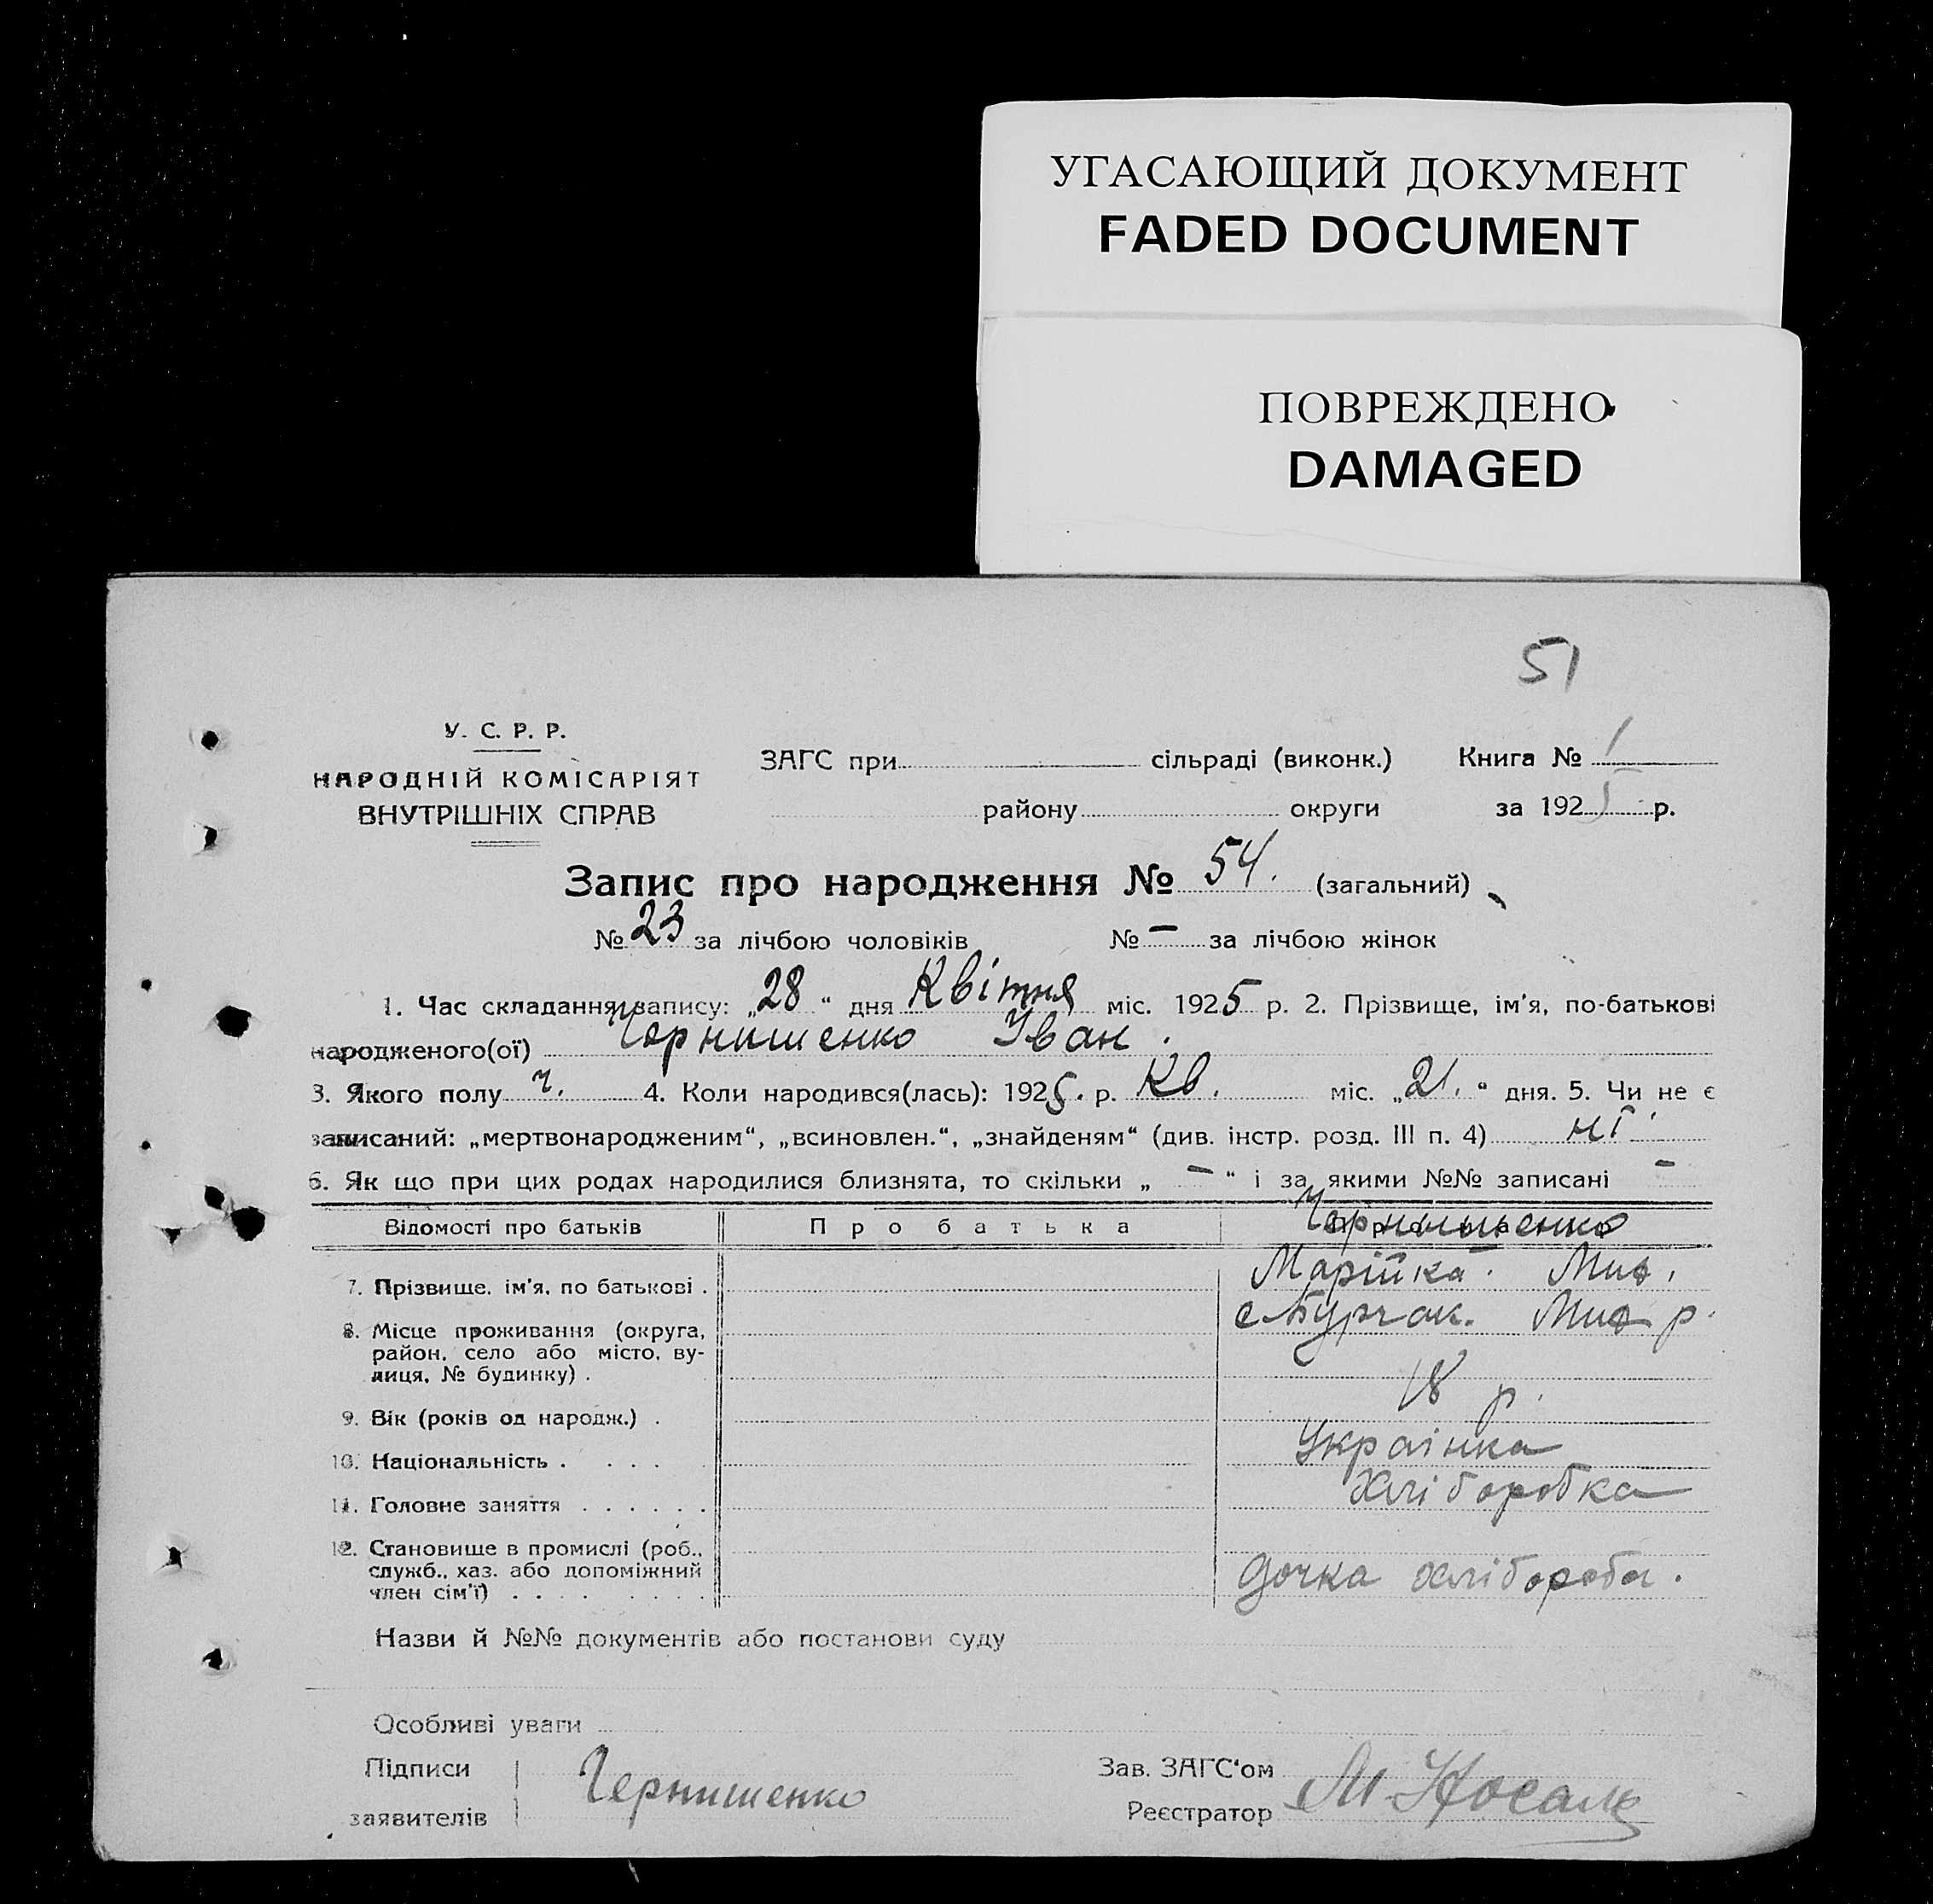 УГАСАЮЩИЙ ДОКУМЕНТ
FADED DOCUMENT
ПОВРЕЖДЕНО
DAMAGED
51
У. С. Р. Р.
НАРОДНІЙ КОМІСАРІЯТ
ВНУТРІШНІХ СПРАВ
ЗАГС при сільраді (виконк.) Книга № 1
району округи за 1925 р.
Запис про народження № 54. (загальний)
№ 23 за лічбою чоловіків № — за лічбою жінок
1. Час складання запису: „28“ дня Квітня міс. 1925 р. 2. Прізвище, ім'я, по-батькові
народженого(ої) Чернишенко Іван.
3. Якого полу ч. 4. Коли народився(лась): 1925. р. Кв. міс. „21.“ дня. 5. Чи не є
записаний: „мертвонародженим“, „всиновлен.“, „знайденям“ (див. інстр. розд. III п. 4) ні
6. Як що при цих родах народилися близнята, то скільки „ — “ і за якими №№ записані —
Відомості про батьків Про батька Чернишенко
7. Прізвище, ім'я, по батькові . Марійка.
8. Місце проживання (округа,
район, село або місто, ву-
лиця, № будинку) .
9. Вік (років од народж.) . 18 р.
10. Національність . . . . Українка
11. Головне заняття . . . . . . Хліборобка
12. Становище в промислі (роб.,
служб., хаз. або допоміжний
член сім'ї) . . . . . . . . Дочка хлібороба.
Назви й №№ документів або постанови суду
Особливі уваги
Підписи
заявителів Чернишенко
Зав. ЗАГС'ом
Реєстратор